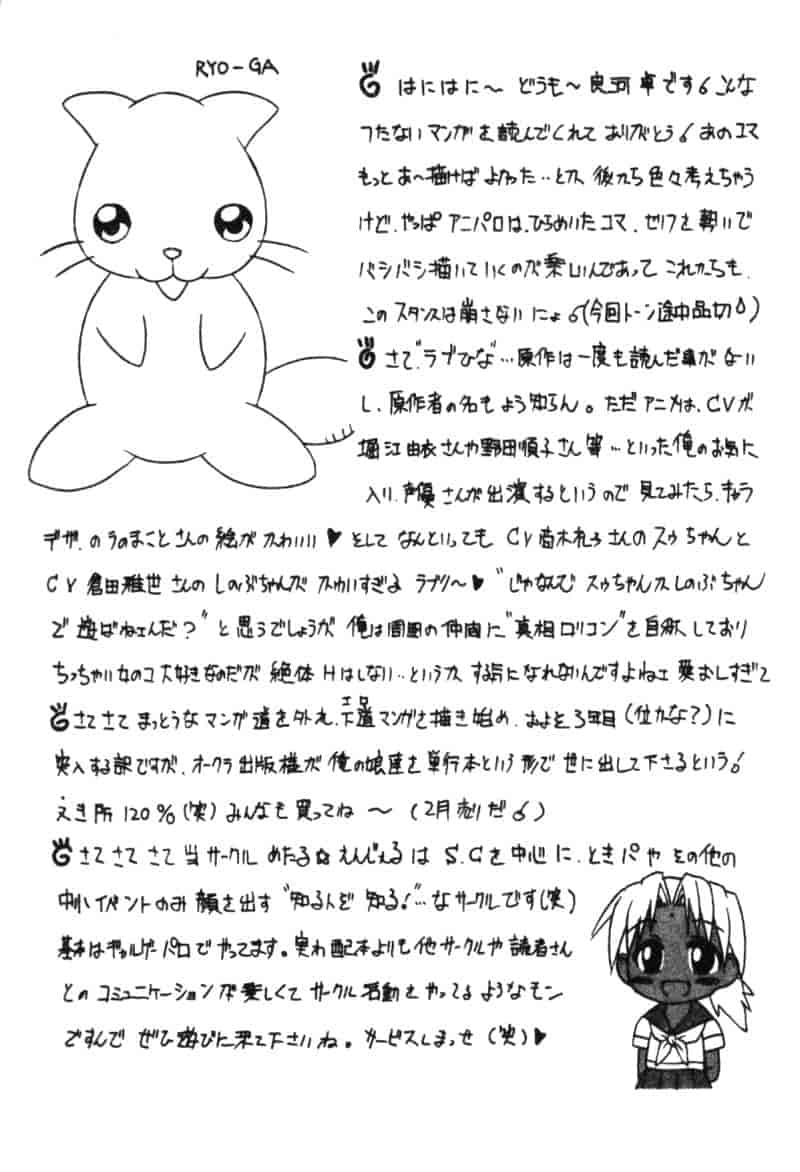 RYO-GA
はにはに～ どうも～ 良河卓です こんな
つたないマンガを読んでくれて ありがとう あのコマ
もっとあ～描けば よかった‥とか 後から色々考えちゃう
けど、やっぱ アニパロは、ひらめいたコマ、セリフを勢いで
バシバシ描いていくのが楽しいんであって これからも、
このスタンスは崩さないにょ (今回トーン途中品切)
さて"ラブひな"…原作は一度も読んだ事がない
し、原作者の名もよう知らん。ただアニメは、CVが
堀江由衣さんや野田順子さん等…といった俺のお気に
入り声優さんが出演するというので見てみたら、キャラ
デザ、のうのまことさんの絵がかわいい♥ そして なんといっても CV高木礼子さんのスゥちゃんと
CV 倉田雅世さんの しのぶちゃんが かわいすぎる ラブリ～♥ "じゃなんで スゥちゃんかしのぶちゃん
で遊ばねェんだ？"と思うでしょうが 俺は周囲の仲間に"真相ロリコン"を自称しており
ちっちゃい女のコ大好きなのだが 絶体Hはしない‥というか する気になれないんですよねェ 愛おしすぎて
さてさて まっとうなマンガ道を外れ、下道マンガを描き始め、およそ3年目(位かな？)に
エロ
突入する訳ですが、オークラ出版様が 俺の娘達を単行本という形で世に出して下さるという
えき所 120%(笑) みんなも買ってね ～ (2月売りだ)
さて さて さて 当サークル めたる☆えんじぇるは S.Cを中心に、ときパや その他の
中小イベントのみ顔を出す "知る人ぞ知る！"…なサークルです(笑)
基本はギャルゲーパロでやってます。実わ配本よりも他サークルや読者さん
とのコミュニケーションが楽しくてサークル活動をやってるようなモン
ですんで ぜひ遊びに来て下さいね。サービスしまっせ (笑)♥